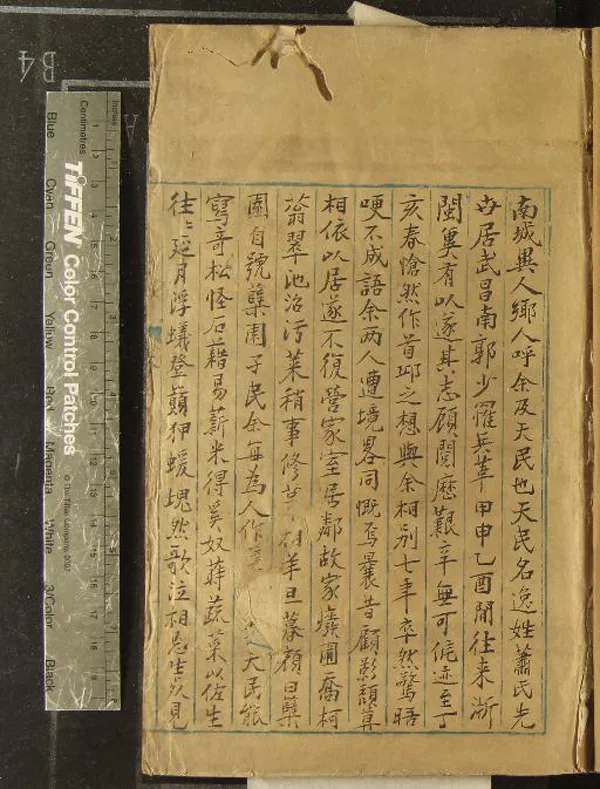 南城異人鄉人呼余及天民也天民名逸姓蕭氏先
世居武昌南郭少罹兵革甲申乙酉間往来浙
閩冀有以遂其志顧閱歷艱辛無可侂迹至丁
亥春愴然作首邱之想與余相别七年卒然驚晤
哽不成語余两人遭境畧同慨焉曩昔顧影頹
相依以居遂不復營家室居鄰故家廢圃喬柯
蓊翠池沼汚萊稍事修 徉旦暮顏曰櫱
園自號櫱園子民余每為人作 天民能
寫奇松怪石藉易薪米得奚奴蒔蔬菜以佐生
徃〻延月浮蟻登巓狎蝯塊然歌泣相忘 見
B4
Inches
Centimetres
TIFFEN Color Control Patches
© The Tiffen Company, 2007
Blue Cyan Green Yellow Red Magenta White 3/Color Black